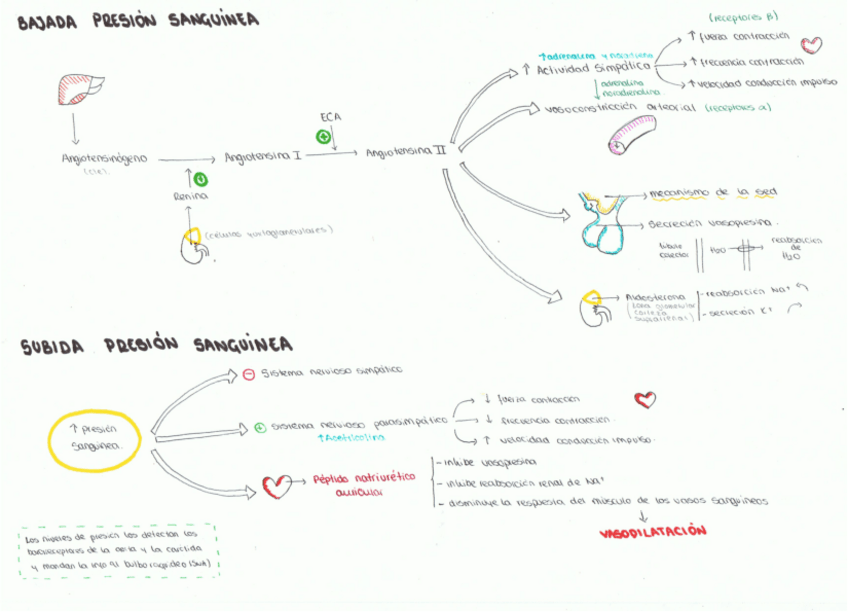 BAJADA PRESIÓN SANGUÍNEA
(receptores β)
↑ fuerza contracción
↑ adrenalina y
↑ Actividad simpática
↑ frecuencia contracción
↑ velocidad conducción impulso
↓ adrenalina
noradrenalina
vasoconstricción arterial (receptores α)
ECA
Angiotensinógeno
Angiotensina I
Angiotensina II
Renina
(células yuxtaglomerulares)
mecanismo de la sed
secreción vasopresina
túbulo
colector
H2O
reabsorción
de
H2O
Aldosterona
(zona glomerular
corteza
suprarrenal)
- reabsorción Na+
- secreción K+
SUBIDA PRESIÓN SANGUÍNEA
Sistema nervioso simpático
↑ presión
sanguínea
sistema nervioso parasimpático
↑Acetilcolina
↓ fuerza contracción
↓ frecuencia contracción
↑ velocidad conducción impulso
Péptido natriurético
auricular
- inhibe vasopresina
- inhibe reabsorción renal de Na+
- disminuye la respuesta del músculo de los vasos sanguíneos
VASODILATACIÓN
Los niveles de presión los detectan los
barorreceptores de la aorta y la carótida
y mandan la info al bulbo raquídeo (SNA)